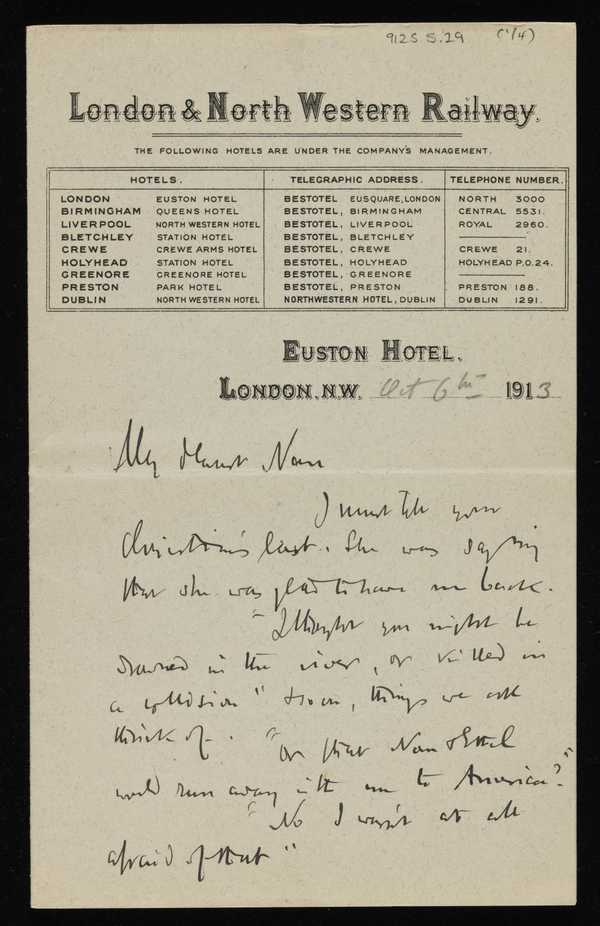 9125 S.29 (1/4)
London & North Western Railway.
THE FOLLOWING HOTELS ARE UNDER THE COMPANY'S MANAGEMENT.
HOTELS. TELEGRAPHIC ADDRESS. TELEPHONE NUMBER.
LONDON EUSTON HOTEL BESTOTEL EUSQUARE, LONDON NORTH 3000
BIRMINGHAM QUEENS HOTEL BESTOTEL, BIRMINGHAM CENTRAL 5531.
LIVERPOOL NORTH WESTERN HOTEL BESTOTEL, LIVERPOOL ROYAL 2960.
BLETCHLEY STATION HOTEL BESTOTEL, BLETCHLEY
CREWE CREWE ARMS HOTEL BESTOTEL, CREWE CREWE 21.
HOLYHEAD STATION HOTEL BESTOTEL, HOLYHEAD HOLYHEAD P.O.24.
GREENORE GREENORE HOTEL BESTOTEL, GREENORE
PRESTON PARK HOTEL BESTOTEL, PRESTON PRESTON 188.
DUBLIN NORTH WESTERN HOTEL NORTHWESTERN HOTEL, DUBLIN DUBLIN 1291.
EUSTON HOTEL.
LONDON. N.W. Oct 6th 1913
My dearest Nan
I must tell you
Christina's last. She was saying
that she was glad to have me back.
"I thought you might be
drowned in the river, or killed in
a collision" &so on, things we all
think of. "Or that Nan & Ethel
would run away with me to America?"
"No I wasn't at all
afraid of that"